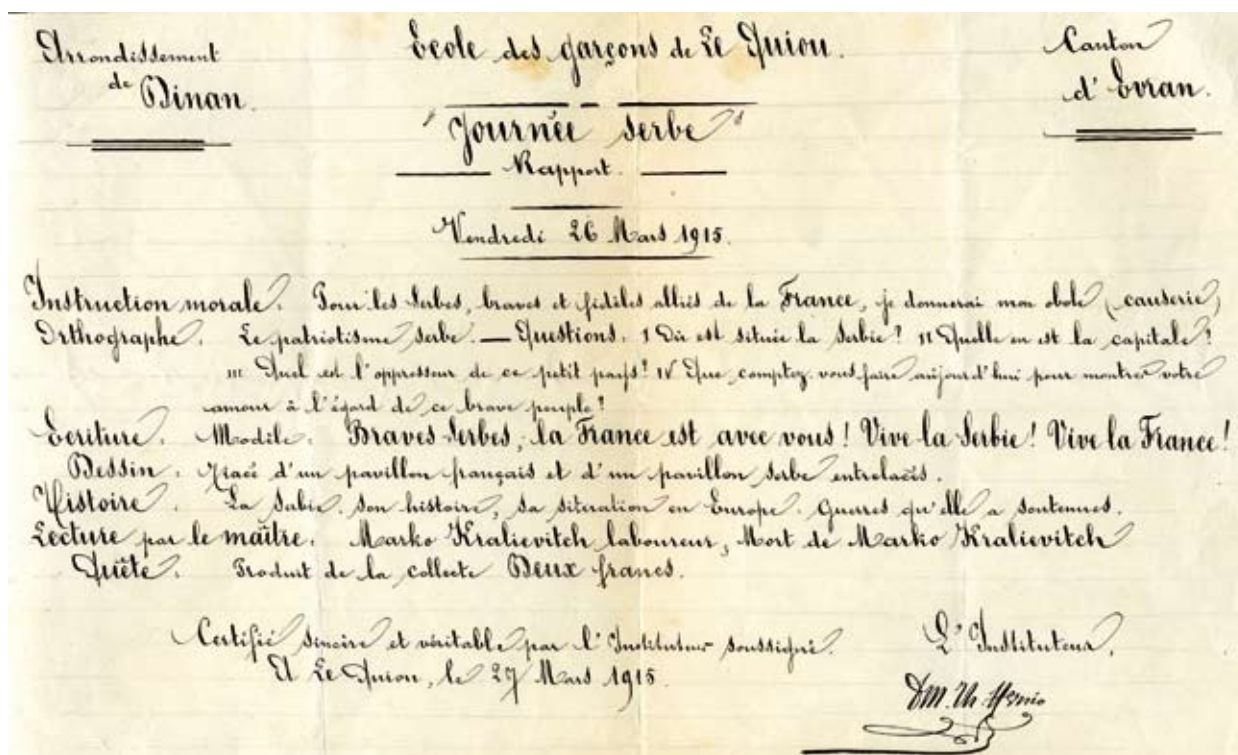 Arrondissement
de Dinan.
Ecole des garçons de Le Quiou.
Canton
d'Evran.
"Journée Serbe"
Rapport.
Vendredi 26 Mars 1915.
Instruction morale. Pour les Serbes, braves et fidèles alliés de la France, je donnerai mon obole (causerie)
Orthographe. Le patriotisme serbe. — Questions. I Où est située la Serbie? II Quelle en est la capitale?
III Quel est l'oppresseur de ce petit pays? IV Que comptez vous faire aujourd'hui pour montrer votre
amour à l'égard de ce brave peuple?
Ecriture. Modèle. Braves Serbes, la France est avec vous! Vive la Serbie! Vive la France!
Dessin. Tracé d'un pavillon français et d'un pavillon serbe entrelacés.
Histoire. La Serbie, son histoire, sa situation en Europe. Guerres qu'elle a soutenues.
Lecture par le maître. Marko Kralievitch laboureur, Mort de Marko Kralievitch
Quête. Produit de la collecte Deux francs.
Certifié sincère et véritable par l'Instituteur soussigné.
A Le Quiou, le 27 Mars 1915.
L'Instituteur,